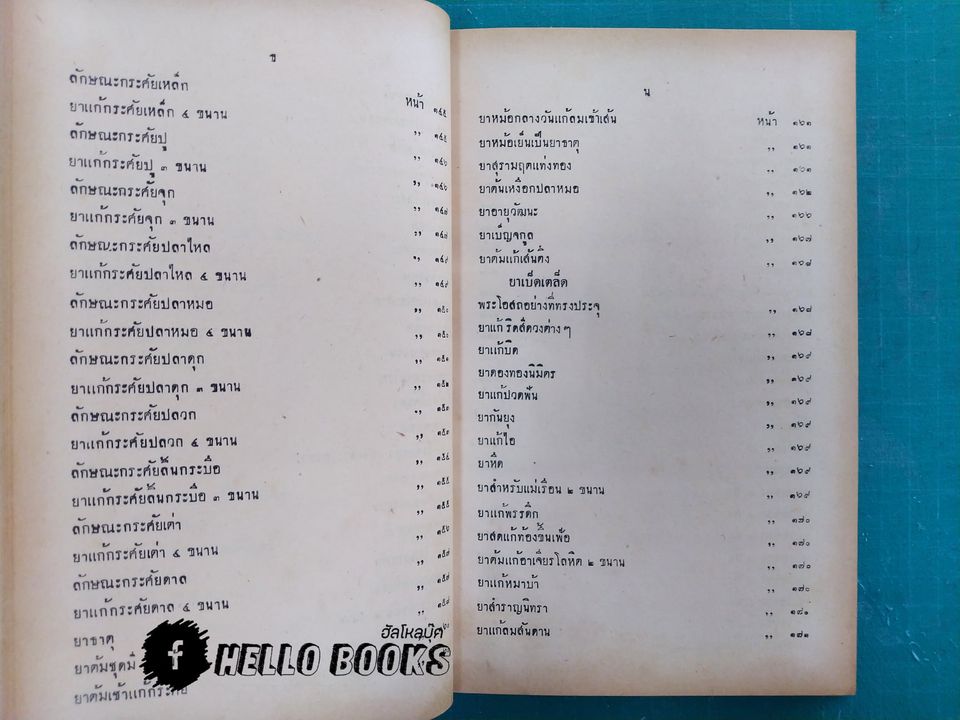 ข
หน้า
ลักษณะกระศัยเหล็ก ๑๔๕
ยาแก้กระศัยเหล็ก ๔ ขนาน ,, ๑๔๕
ลักษณะกระศัยปู ,, ๑๔๖
ยาแก้กระศัยปู ๓ ขนาน ,, ๑๔๖
ลักษณะกระศัยจุก ,, ๑๔๗
ยาแก้กระศัยจุก ๓ ขนาน ,, ๑๔๗
ลักษณะกระศัยปลาไหล ,, ๑๔๙
ยาแก้กระศัยปลาไหล ๔ ขนาน ,, ๑๔๙
ลักษณะกระศัยปลาหมอ ,, ๑๕๐
ยาแก้กระศัยปลาหมอ ๔ ขนาน ,, ๑๕๐
ลักษณะกระศัยปลาดุก ,, ๑๕๑
ยาแก้กระศัยปลาดุก ๓ ขนาน ,, ๑๕๒
ลักษณะกระศัยปลวก ,, ๑๕๓
ยาแก้กระศัยปลวก ๔ ขนาน ,, ๑๕๓
ลักษณะกระศัยลิ้นกระบือ ,, ๑๕๔
ยาแก้กระศัยลิ้นกระบือ ๓ ขนาน ,, ๑๕๕
ลักษณะกระศัยเต่า ,, ๑๕๕
ยาแก้กระศัยเต่า ๔ ขนาน ,, ๑๕๖
ลักษณะกระศัยดาล ,, ๑๕๗
ยาแก้กระศัยดาล ๔ ขนาน ,, ๑๕๗
ยาธาตุ ,, ๑๕๙
ยาต้มชุดมิ
ยาต้มเช้าแก้กระศัย
ฮัลโหลบุ๊ค
f HELLO BOOKS
น
ยาหม้อกลางวันแก้ลมเข้าเส้น หน้า ๑๖๑
ยาหม้อเย็นเป็นยาธาตุ ,, ๑๖๑
ยาสุรามฤตแท่งทอง ,, ๑๖๑
ยาต้นเหงือกปลาหมอ ,, ๑๖๒
ยาอายุวัฒนะ ,, ๑๖๖
ยาเบ็ญจกูล ,, ๑๖๗
ยาต้มแก้เส้นตึง ,, ๑๖๘
ยาเบ็ดเตล็ด
พระโอสถอย่างที่ทรงประจุ ,, ๑๖๘
ยาแก้ริดสีดวงต่างๆ ,, ๑๖๘
ยาแก้บิด ,, ๑๖๙
ยาดองทองนิมิตร ,, ๑๖๙
ยาแก้ปวดฟัน ,, ๑๖๙
ยากันยุง ,, ๑๖๙
ยาแก้ไอ ,, ๑๖๙
ยาหิด ,, ๑๖๙
ยาสำหรับแม่เรือน ๒ ขนาน ,, ๑๖๙
ยาแก้พรรดึก ,, ๑๗๐
ยาสดแก้ท้องขึ้นเฟ้อ ,, ๑๗๐
ยาต้มแก้อาเจียรโลหิต ๒ ขนาน ,, ๑๗๐
ยาแก้หมาบ้า ,, ๑๗๐
ยาสำราญนิทรา ,, ๑๗๑
ยาแก้ลมสันดาน ,, ๑๗๑